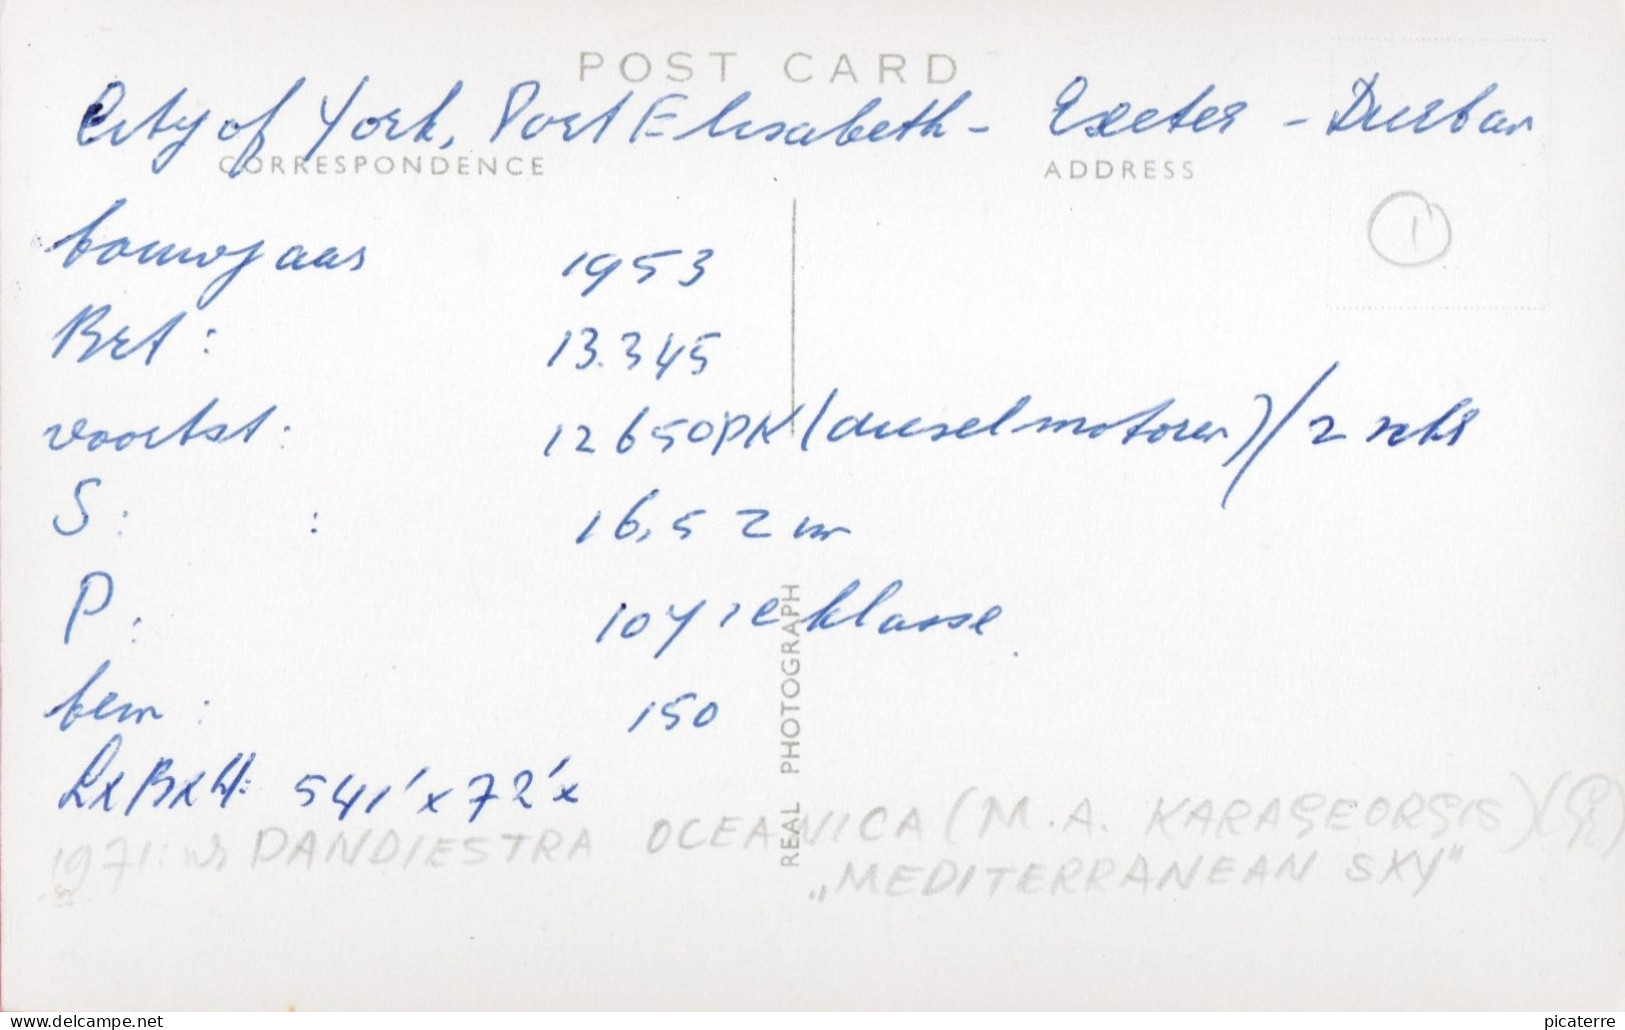 POST CARD
City of York, Port Elisabeth - Exeter - Durban
CORRESPONDENCE
ADDRESS
1
bouwjaar 1953
Brt: 13.345
voortst: 12650 PK (dieselmotoren) / 2 schr
S: : 16,5 zm
P: 107 1e klasse
bem: 150
REAL PHOTOGRAPH
LxBxH: 541' x 72' x
1971: DANDIESTRA OCEANICA (M.A. KARAGEORGIS) (Gr)
„MEDITERRANEAN SKY"
delcampe.net
picaterre